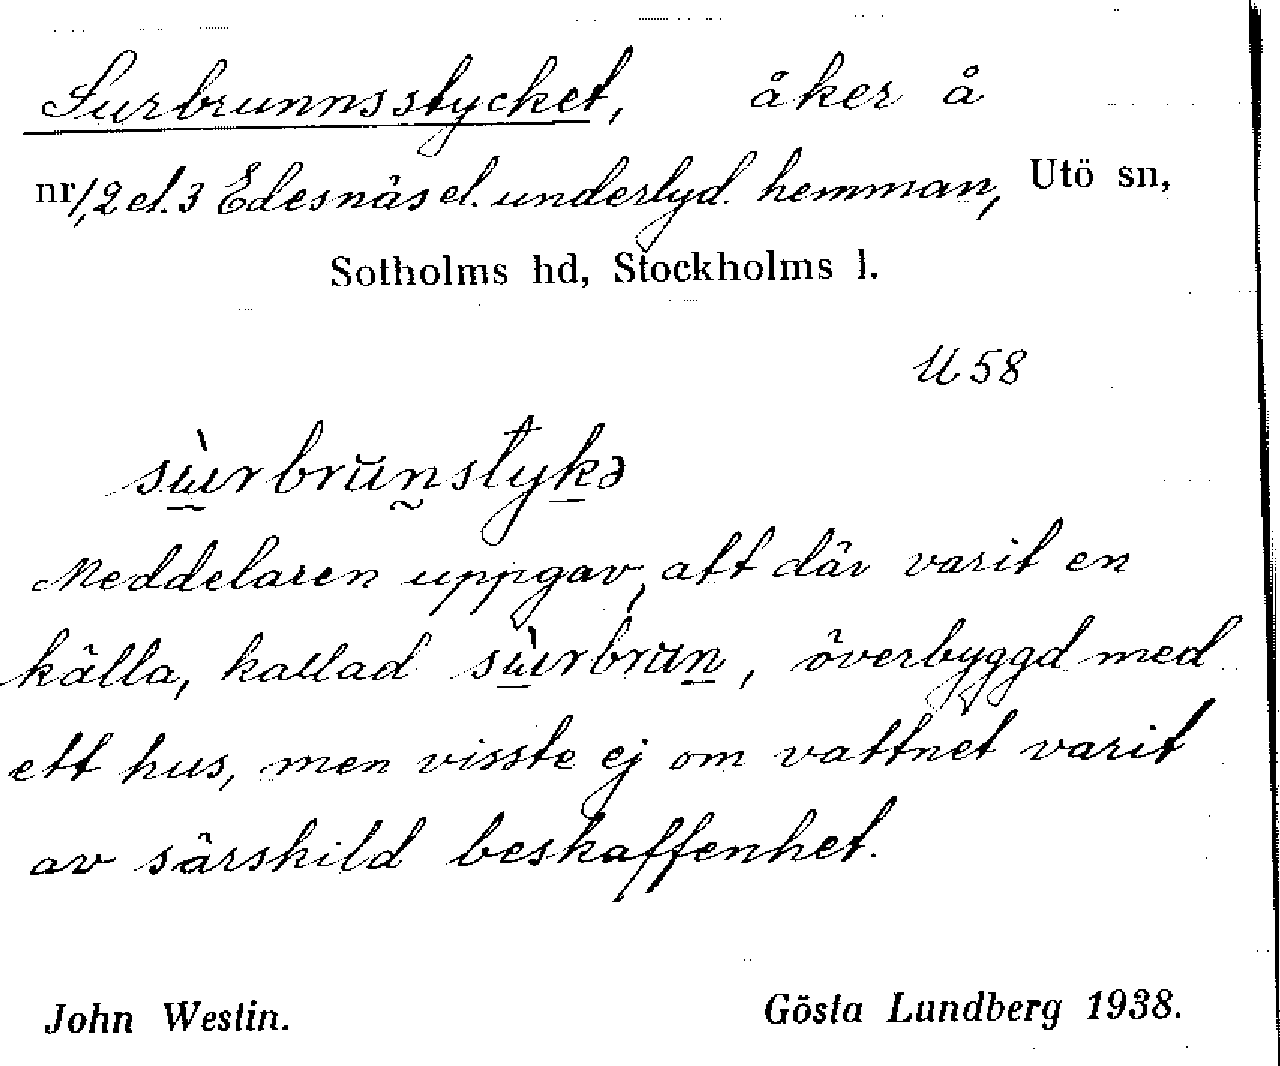 Surbrunnsstycket, åker å
nr 1, 2 el. 3 Edesnäs el. underlyd. hemman, Utö sn,
Sotholms hd, Stockholms l.
U 58
sùrbrŭnstykə
Meddelaren uppgav, att där varit en
källa, kallad sùrbrŭn, överbyggd med
ett hus, men visste ej om vattnet varit
av särskild beskaffenhet.
John Westin. Gösta Lundberg 1938.